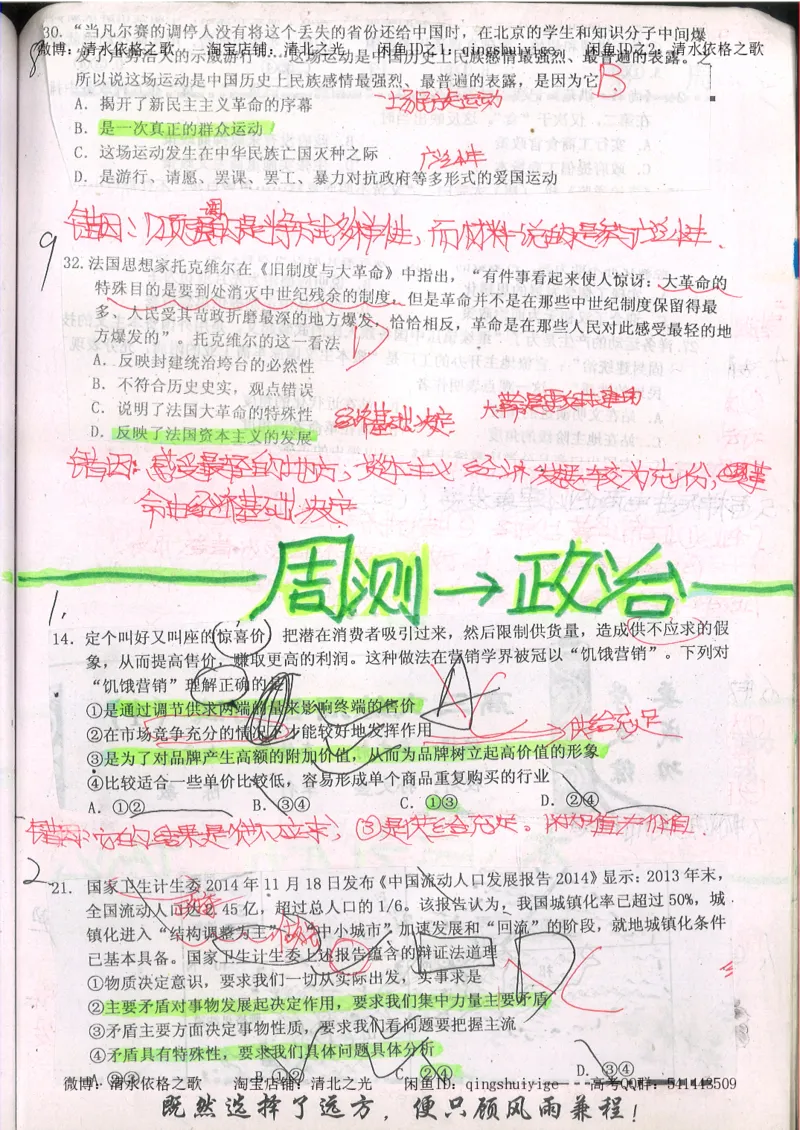 30. “当凡尔赛的调停人没有将这个丢失的省份还给中国时，在北京的学生和知识分子中间爆
微博：清水依格之歌 淘宝店铺：清北之光 闲鱼ID之1：qingshuiyige 闲鱼ID之2：清水依格之歌
8
发了浩浩荡荡的示威游行……这场运动是中国历史上民族感情最强烈、最普遍的表露。”
所以说这场运动是中国历史上民族感情最强烈、最普遍的表露，是因为它
B
A. 揭开了新民主主义革命的序幕
一场民族运动
B. 是一次真正的群众运动
C. 这场运动发生在中华民族亡国灭种之际
广泛性
D. 是游行、请愿、罢课、罢工、暴力对抗政府等多形式的爱国运动
错因：D项强调的是斗争方式多样性，而材料说的是参与广泛性.
9
32. 法国思想家托克维尔在《旧制度与大革命》中指出，“有件事看起来使人惊讶：大革命的
特殊目的是要到处消灭中世纪残余的制度，但是革命并不是在那些中世纪制度保留得最
多、人民受其苛政折磨最深的地方爆发，恰恰相反，革命是在那些人民对此感受最轻的地
方爆发的”。托克维尔的这一看法
D
A. 反映封建统治垮台的必然性
B. 不符合历史史实，观点错误
C. 说明了法国大革命的特殊性
大革命是资本主义推动
D. 反映了法国资本主义的发展
经济基础决定
错因：感受最轻的地方，资本主义经济发展较为充分，革
命由经济基础决定
周测→政治
1.
14. 定个叫好又叫座的惊喜价，把潜在消费者吸引过来，然后限制供货量，造成供不应求的假
象，从而提高售价，赚取更高的利润。这种做法在营销学界被冠以“饥饿营销”。下列对
“饥饿营销”理解正确的是
①是通过调节供求两端的量来影响终端的售价
②在市场竞争充分的情况下才能较好地发挥作用
供给充足
③是为了对品牌产生高额的附加价值，从而为品牌树立起高价值的形象
④比较适合一些单价比较低，容易形成单个商品重复购买的行业
A. ①② B. ③④ C. ①③ D. ②④
2
21. 国家卫生计生委2014年11月18日发布《中国流动人口发展报告2014》显示：2013年末，
全国流动人口达2.45亿，超过总人口的1/6。该报告认为，我国城镇化率已超过50%，城
镇化进入“结构调整为主”、“中小城市”加速发展和“回流”的阶段，就地城镇化条件
已基本具备。国家卫生计生委上述报告蕴含的辩证法道理
D
①物质决定意识，要求我们一切从实际出发，实事求是
②主要矛盾对事物发展起决定作用，要求我们集中力量主要矛盾
③矛盾主要方面决定事物性质，要求我们看问题要把握主流
④矛盾具有特殊性，要求我们具体问题具体分析
B. ①② C. ②④ D. ③④
微博：清水依格之歌 淘宝店铺：清北之光 闲鱼ID：qingshuiyige 高考QQ群：541443509
既然选择了远方，便只顾风雨兼程！